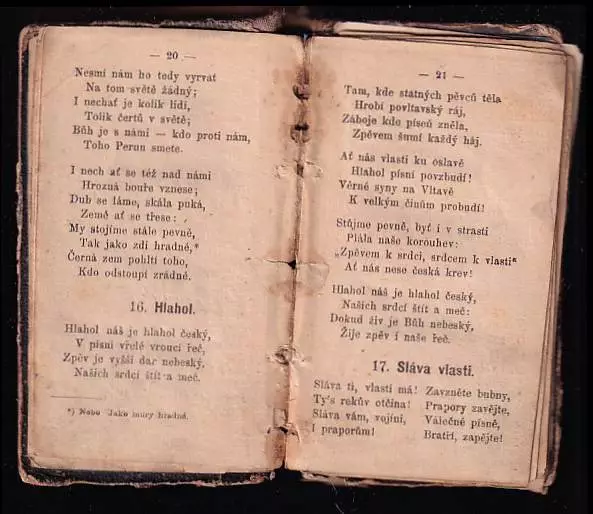 — 20 —
Nesmí nám ho tedy vyrvat
Na tom světě žádný;
I nechať je kolik lidí,
Tolik čertů v světě;
Bůh je s námi — kdo proti nám,
Toho Perun smete.
I nech ať se též nad námi
Hrozná bouře vznese;
Dub se láme, skála puká,
Země ať se třese:
My stojíme stále pevně,
Tak jako zdi hradné,*
Černá zem pohltí toho,
Kdo odstoupí zrádně.
16. Hlahol.
Hlahol náš je hlahol český,
V písni vřelé vroucí řeč,
Zpěv je vyšší dar nebeský,
Našich srdcí štít a meč.
*) Nebo Jako mury hradné.
— 21 —
Tam, kde statných pěvců těla
Hrobí povltavský ráj,
Záboje kde píseň zněla,
Zpěvem šumí každý háj.
Ať nás vlasti ku oslavě
Hlahol písní povzbudí!
Věrné syny na Vltavě
K velkým činům probudí!
Stůjme pevně, byť i v strasti
Plála naše korouhev:
„Zpěvem k srdci, srdcem k vlasti“
Ať nás nese česká krev!
Hlahol náš je hlahol český,
Našich srdcí štít a meč:
Dokud živ je Bůh nebeský,
Žije zpěv i naše řeč.
17. Sláva vlasti.
Sláva ti, vlasti má!
Ty's rekův otčina!
Sláva vám, vojíni,
I praporům!
Zavzněte bubny,
Prapory zavějte,
Válečné písně,
Bratří, zapějte!